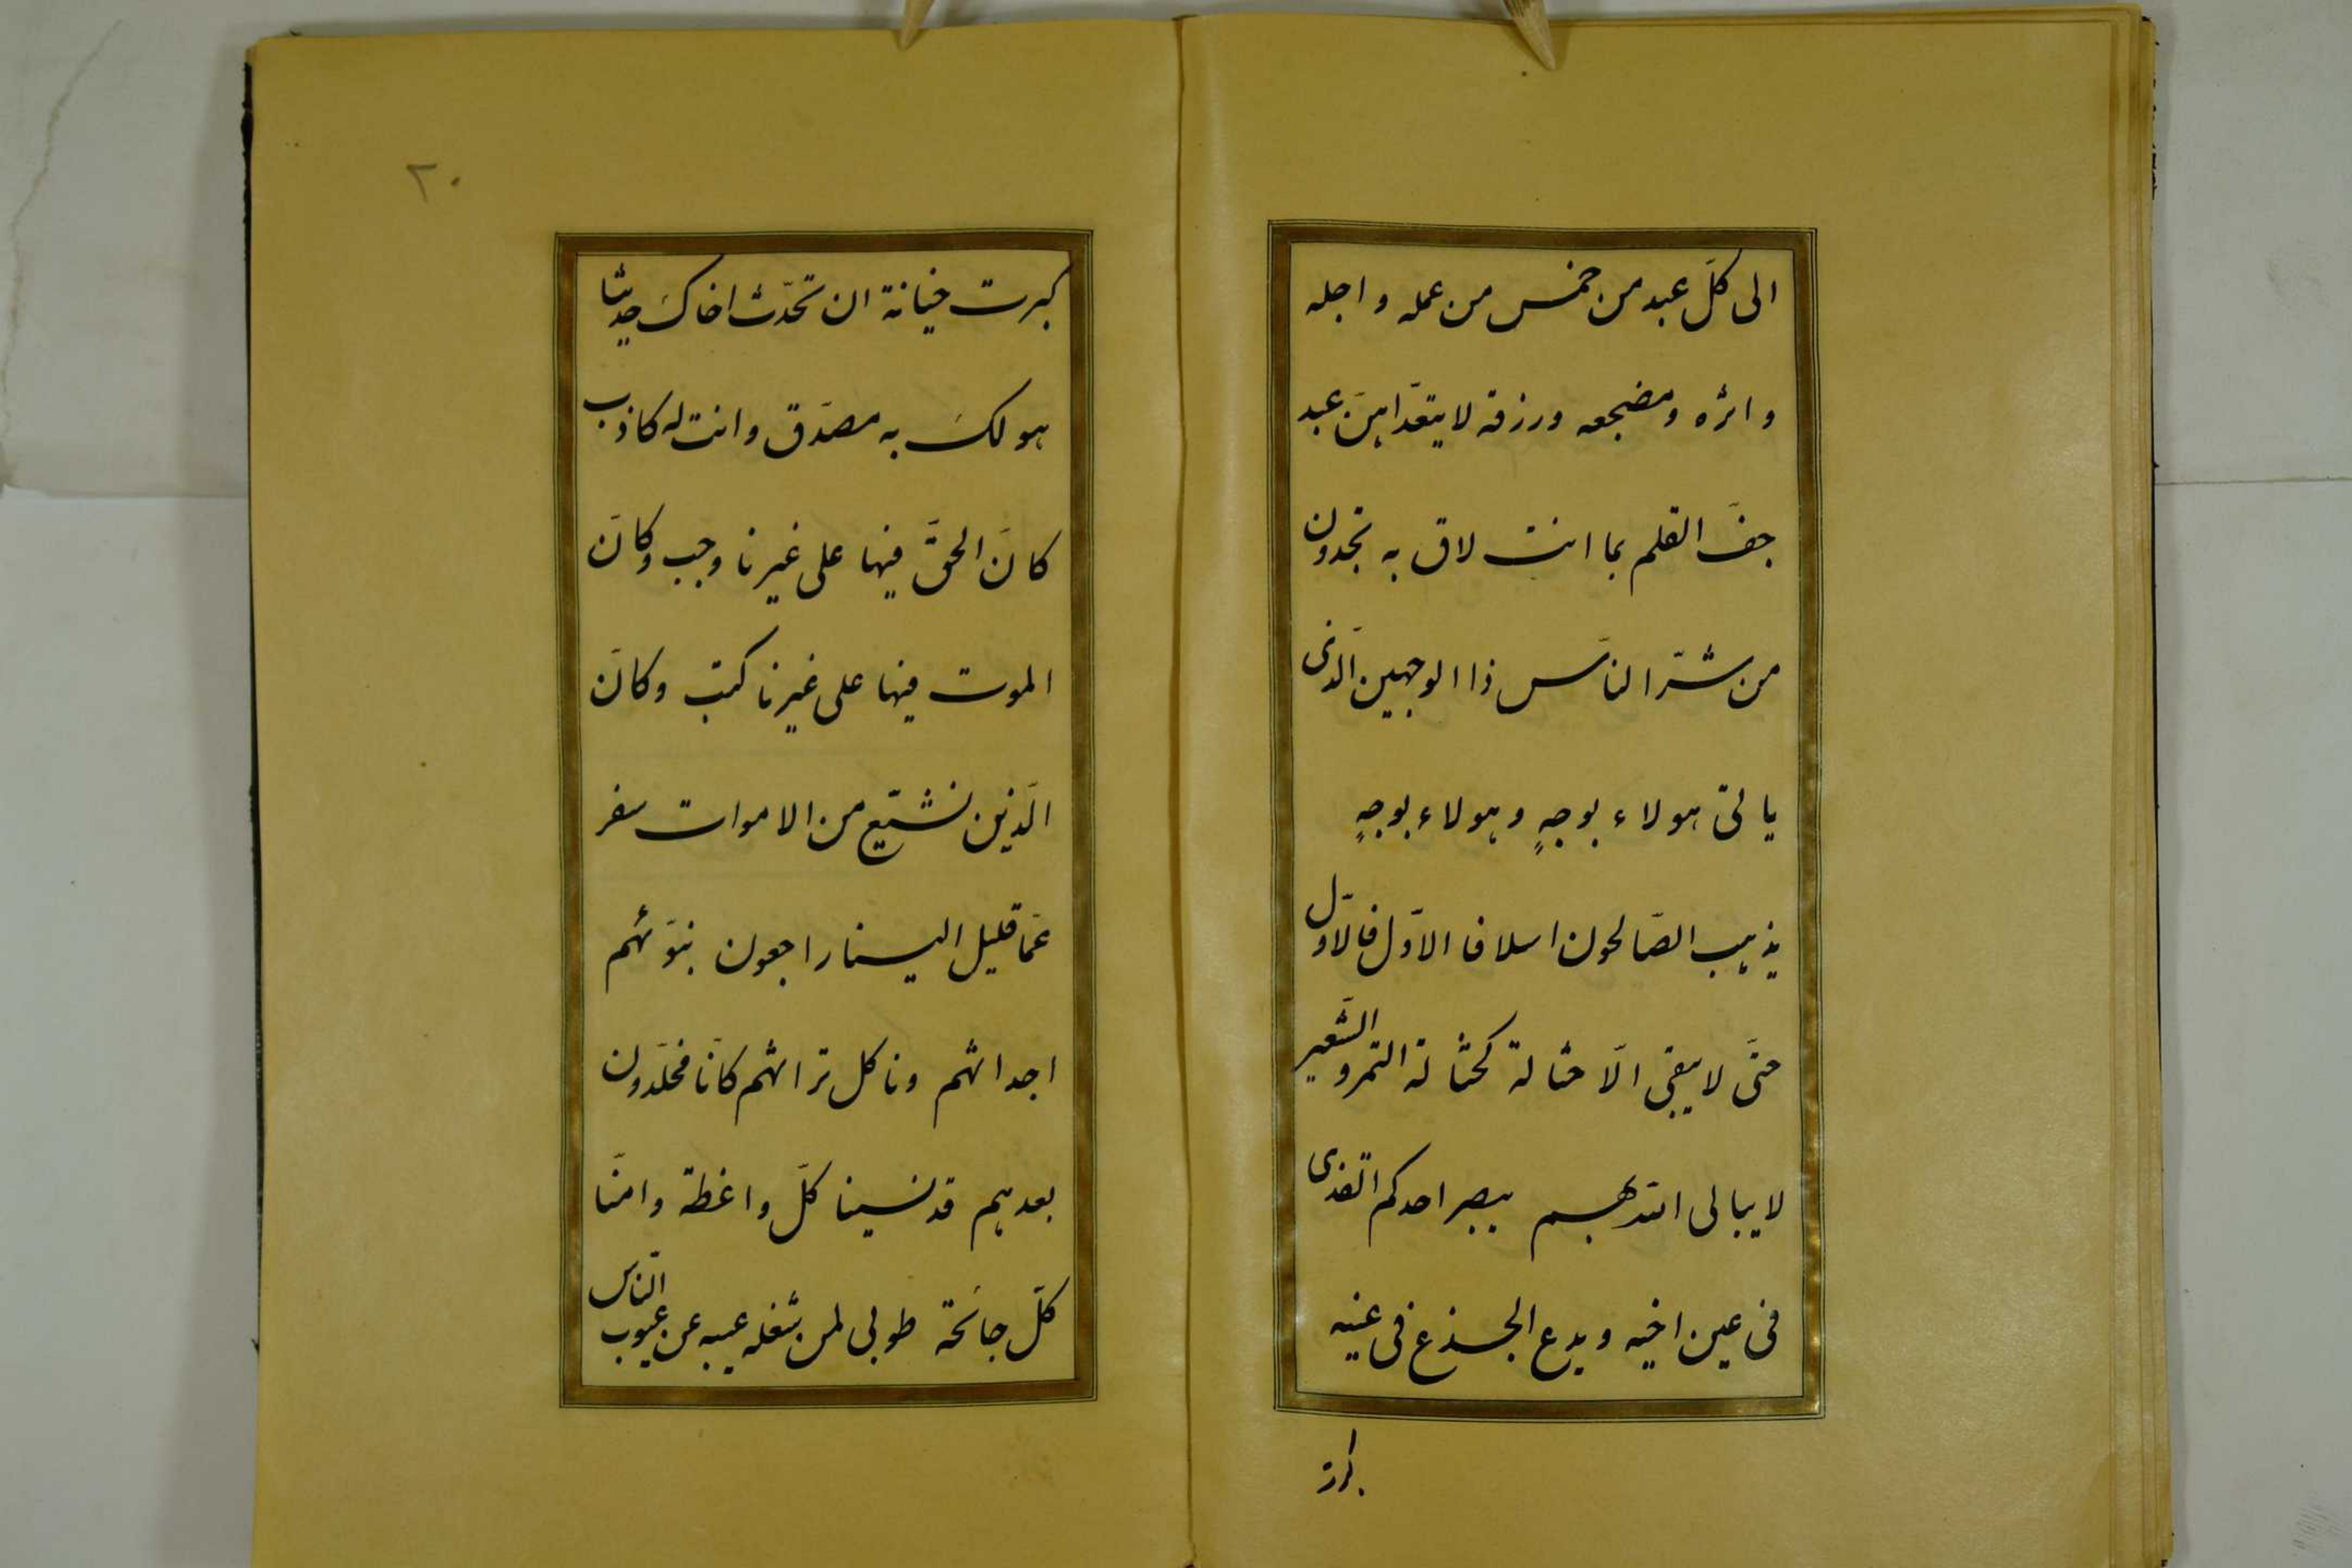 الی کلّ عبد من خمس من عمله و اجله
و اثره و مضجعه و رزقه لا یتعدّاهنّ عبد
جفّ القلم بما انت لاق به تجدون
من شرّ النّاس ذا الوجهین الّذی
یاتی هولاء بوجهٍ و هولاء بوجهٍ
یذهب الصّالحون اسلافا الاوّل فالاوّل
حتّی لا یبقی الّا حثالة کحثالة التمر و الشّعیر
لا یبالی اللّه بهم یبصر احدکم القذی
فی عین اخیه و یدع الجذع فی عینه
کبرت
۲۰
کبرت خیانة ان تحدّث اخاکَ حدیثا
هو لکَ به مصدّق و انت له کاذب
کانَ الحقّ فیها علی غیرنا وجب و کانَ
الموت فیها علی غیرنا کتب و کانَ
الّذین نشیّع من الاموات سفر
عمّا قلیل الینا راجعون نبوّئهم
اجداثهم و ناکل تراثهم کانّا مخلّدون
بعدهم قد نسینا کلّ واعظة و امنّا
کلّ جائحة طوبی لمن شغله عیبه عن عیوب النّاس